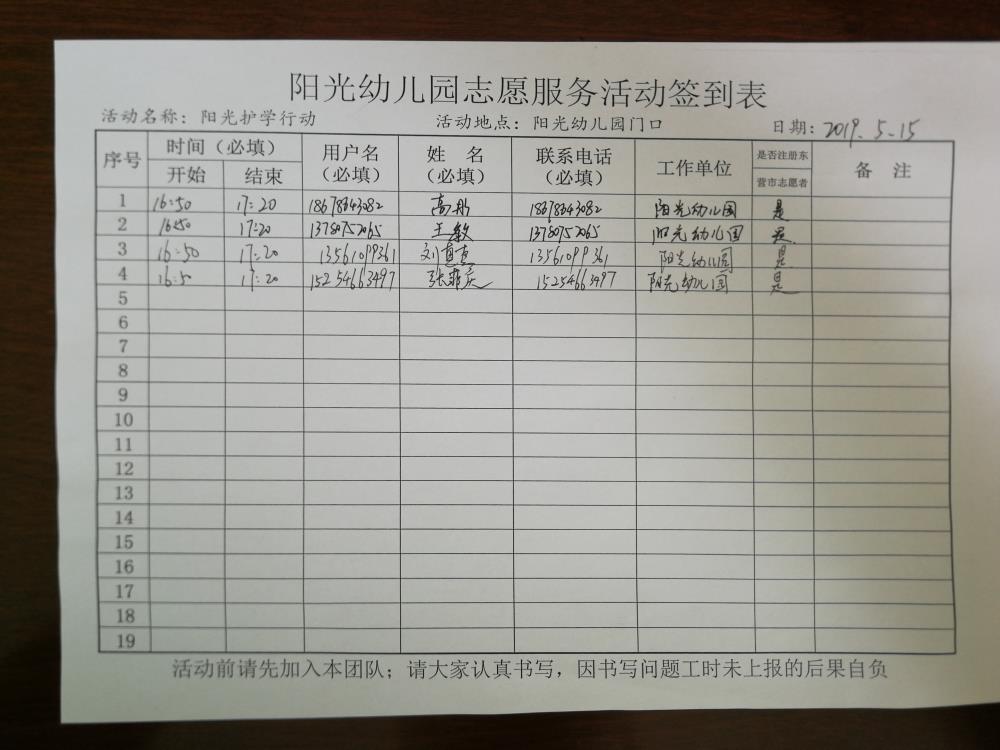 阳光幼儿园志愿服务活动签到表
活动名称：阳光护学行动 活动地点：阳光幼儿园门口 日期：2019.5.15
序号 时间（必填） 用户名（必填） 姓 名（必填） 联系电话（必填） 工作单位 是否注册东营市志愿者 备 注
开始 结束
1 16:50 17:20 18678643082 高彤 18678643082 阳光幼儿园 是
2 16:50 17:20 13780752065 王敏 13780752065 阳光幼儿园 是
3 16:50 17:20 13561099361 刘 13561099361 阳光幼儿园 是
4 16:50 17:20 15254663497 张 15254663497 阳光幼儿园 是
5
6
7
8
9
10
11
12
13
14
15
16
17
18
19
活动前请先加入本团队；请大家认真书写，因书写问题工时未上报的后果自负